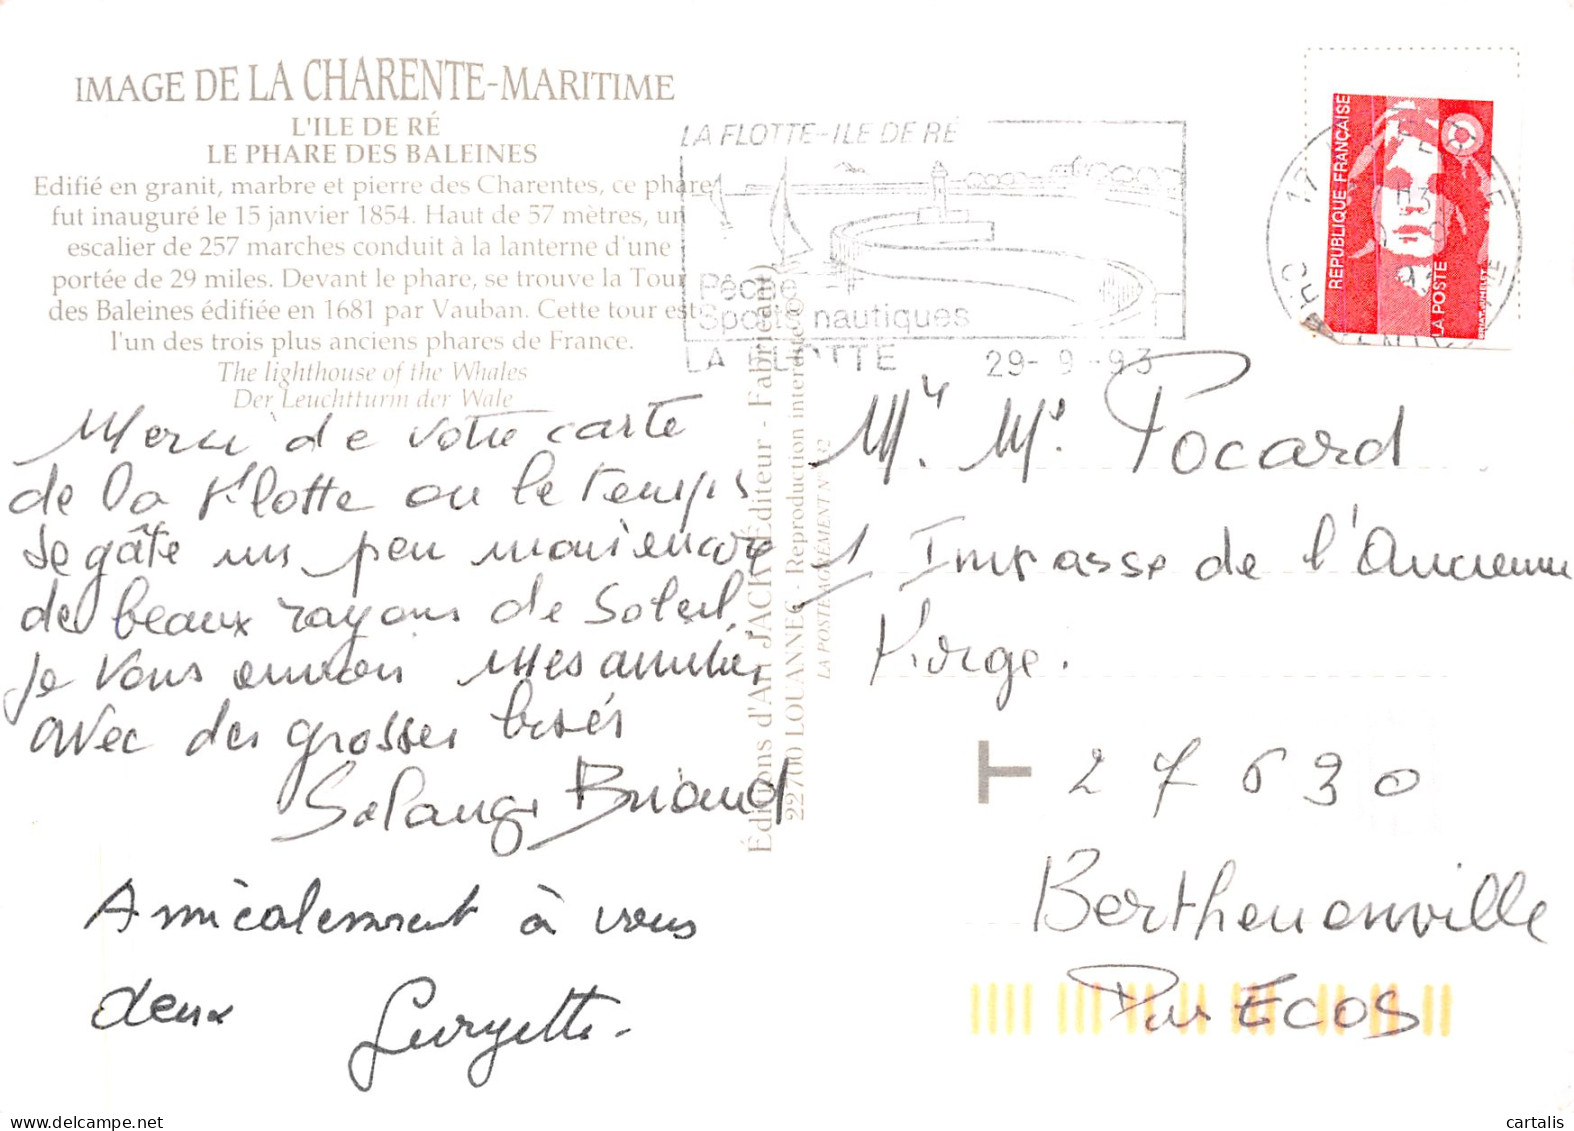 IMAGE DE LA CHARENTE-MARITIME
L'ILE DE RÉ
LE PHARE DES BALEINES
Edifié en granit, marbre et pierre des Charentes, ce phare
fut inauguré le 15 janvier 1854. Haut de 57 mètres, un
escalier de 257 marches conduit à la lanterne d'une
portée de 29 miles. Devant le phare, se trouve la Tour
des Baleines édifiée en 1681 par Vauban. Cette tour est
l'un des trois plus anciens phares de France.
The lighthouse of the Whales
Der Leuchtturm der Wale
Merci de votre carte
de la Flotte ou le temps
se gâte un peu mais encore
de beaux rayons de Soleil,
je vous envoie mes amitiés
avec des grosses bises
Solange Briand
Amicalement à vous
deux
Éditions d'Art JACK (Éditeur - Fabricant)
22700 LOUANNEC - Reproduction interdite ©
LA POSTE AGRÉMENT N°
LA FLOTTE-ILE DE RÉ
Pêche
Sports nautiques
LA FLOTTE 29-9-93
RÉPUBLIQUE FRANÇAISE
LA POSTE
17
Mr. Me. Pocard
1 Impasse de l'Ancienne
Forge.
T 27630
Berthenonville
Par ECOS
cartalis.com